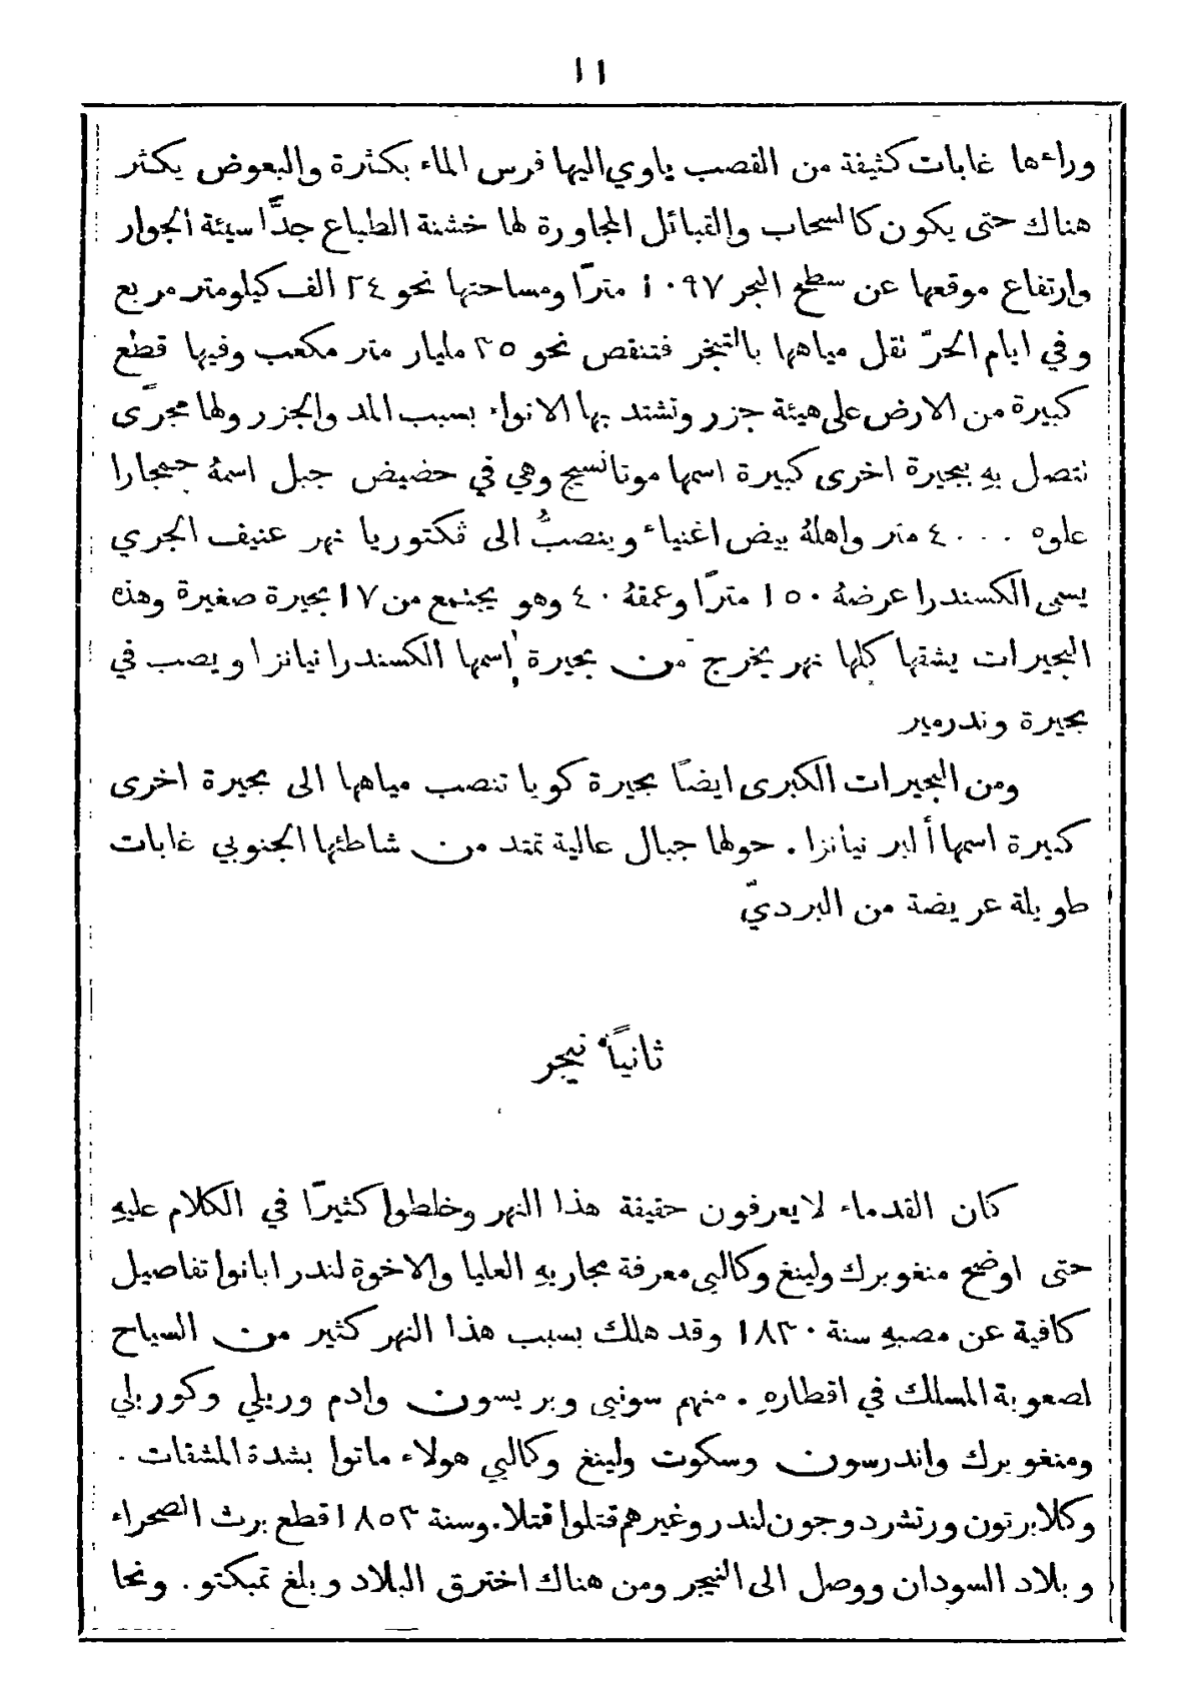 ١١
وراءها غابات كثيفة من القصب ياوي اليها فرس الماء بكثرة والبعوض يكثر
هناك حتى يكون كالسحاب والقبائل المجاورة لها خشنة الطباع جدًّا سيئة الجوار
وارتفاع موقعها عن سطح البحر ١٠٩٧ مترًا ومساحتها نحو ٢٤ الف كيلومتر مربع
وفي ايام الحرّ نقل مياهها بالتبخر فتنقص نحو ٣٥ مليار متر مكعب وفيها قطع
كبيرة من الارض على هيئة جزر وتشتد بها الانواء بسبب المد والجزر ولها مجرًى
نتصل بهِ ببحيرة اخرى كبيرة اسمها موتانسيج وهي في حضيض جبل اسمهُ جمجارا
علوه ٤٠٠٠ متر واهلهُ بيض اغنياء وينصبُّ الى ڤكتوريا نهر عنيف الجري
يسمى الكسندرا عرضهُ ١٥٠ مترًا وعمقهُ ٤٠ وهو يجتمع من ١٧ بحيرة صغيرة وهذه
البحيرات يشقها كلها نهر يخرج من بحيرة اسمها الكسندرا نيانزا ويصب في
بحيرة وندرمير
ومن البحيرات الكبرى ايضًا بحيرة كويا تنصب مياهها الى بحيرة اخرى
كبيرة اسمها ألبر نيانزا . حولها جبال عالية تمتد من شاطئها الجنوبي غابات
طويلة عريضة من البرديّ
ثانيًا نيجر
كان القدماء لا يعرفون حقيقة هذا النهر وخلطوا كثيرًا في الكلام عليهِ
حتى اوضح منغوبرك ولينغ وكالبي معرفة مجاريهِ العليا والاخوة لندر ابانوا تفاصيل
كافية عن مصبهِ سنة ١٨٣٠ وقد هلك بسبب هذا النهر كثير من السياح
لصعوبة المسلك في اقطارهِ . منهم سونبي وبريسون وادم وريلي وكوربلي
ومنغوبرك واندرسون وسكوت ولينغ وكالبي هولاء ماتوا بشدة المشقات .
وكلابرتون ورتشرد وجون لندر وغيرهم قتلوا قتلا. وسنة ١٨٥٣ قطع برث الصحراء
وبلاد السودان ووصل الى النيجر ومن هناك اخترق البلاد وبلغ تمبكتو. ونحا